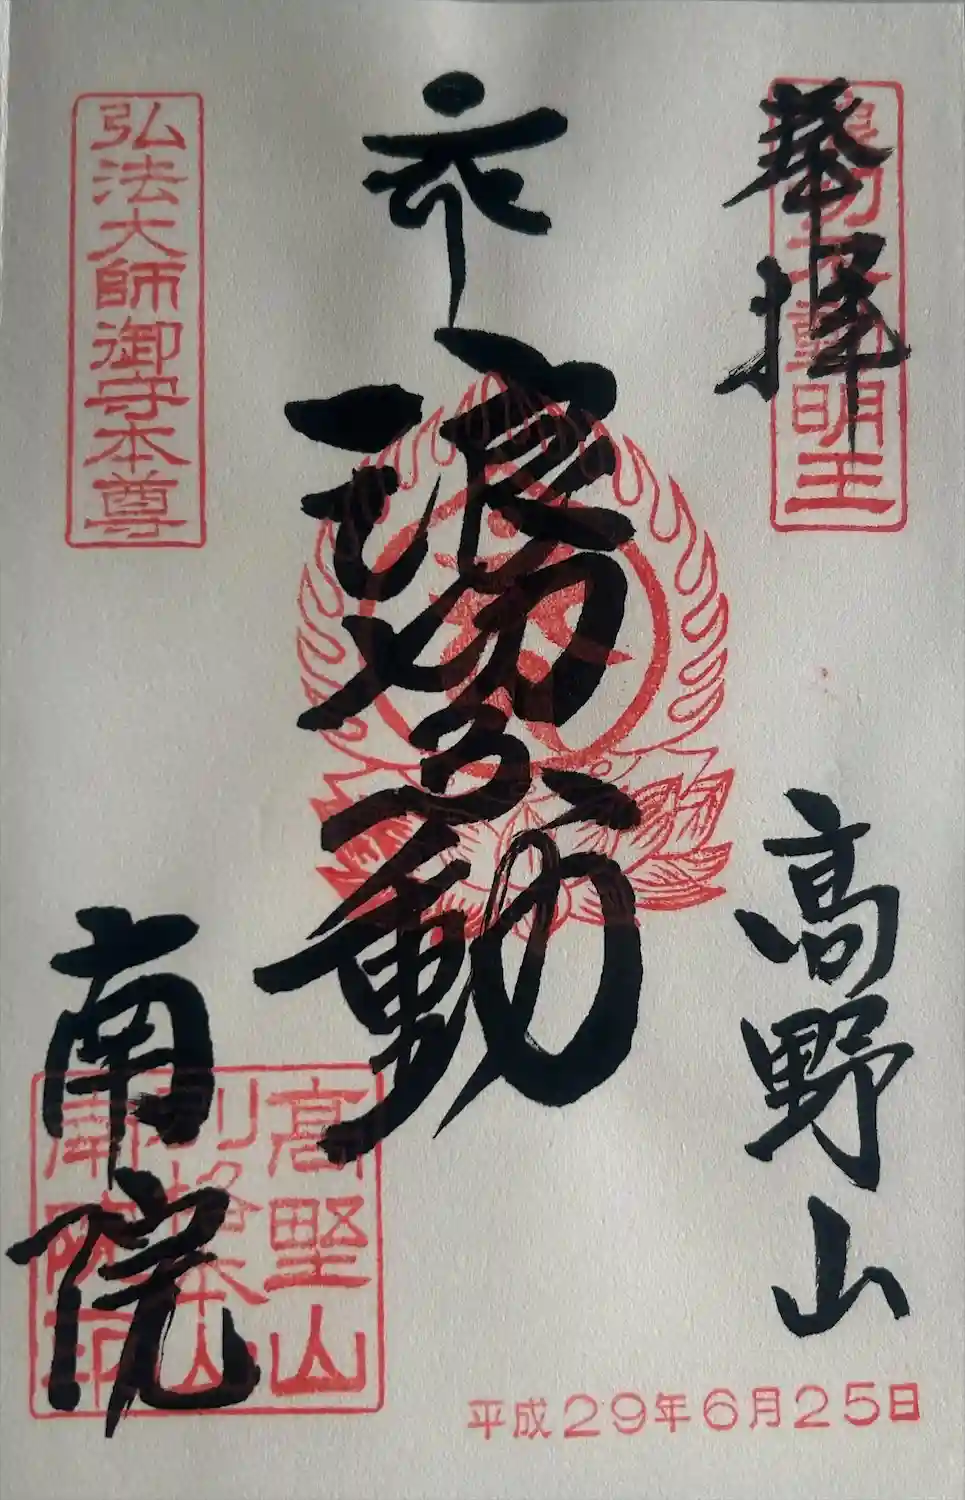 奉拝
浪切不動明王
高野山
浪切不動
弘法大師御守本尊
南院
高野山
別格本山
南院印
平成29年6月25日